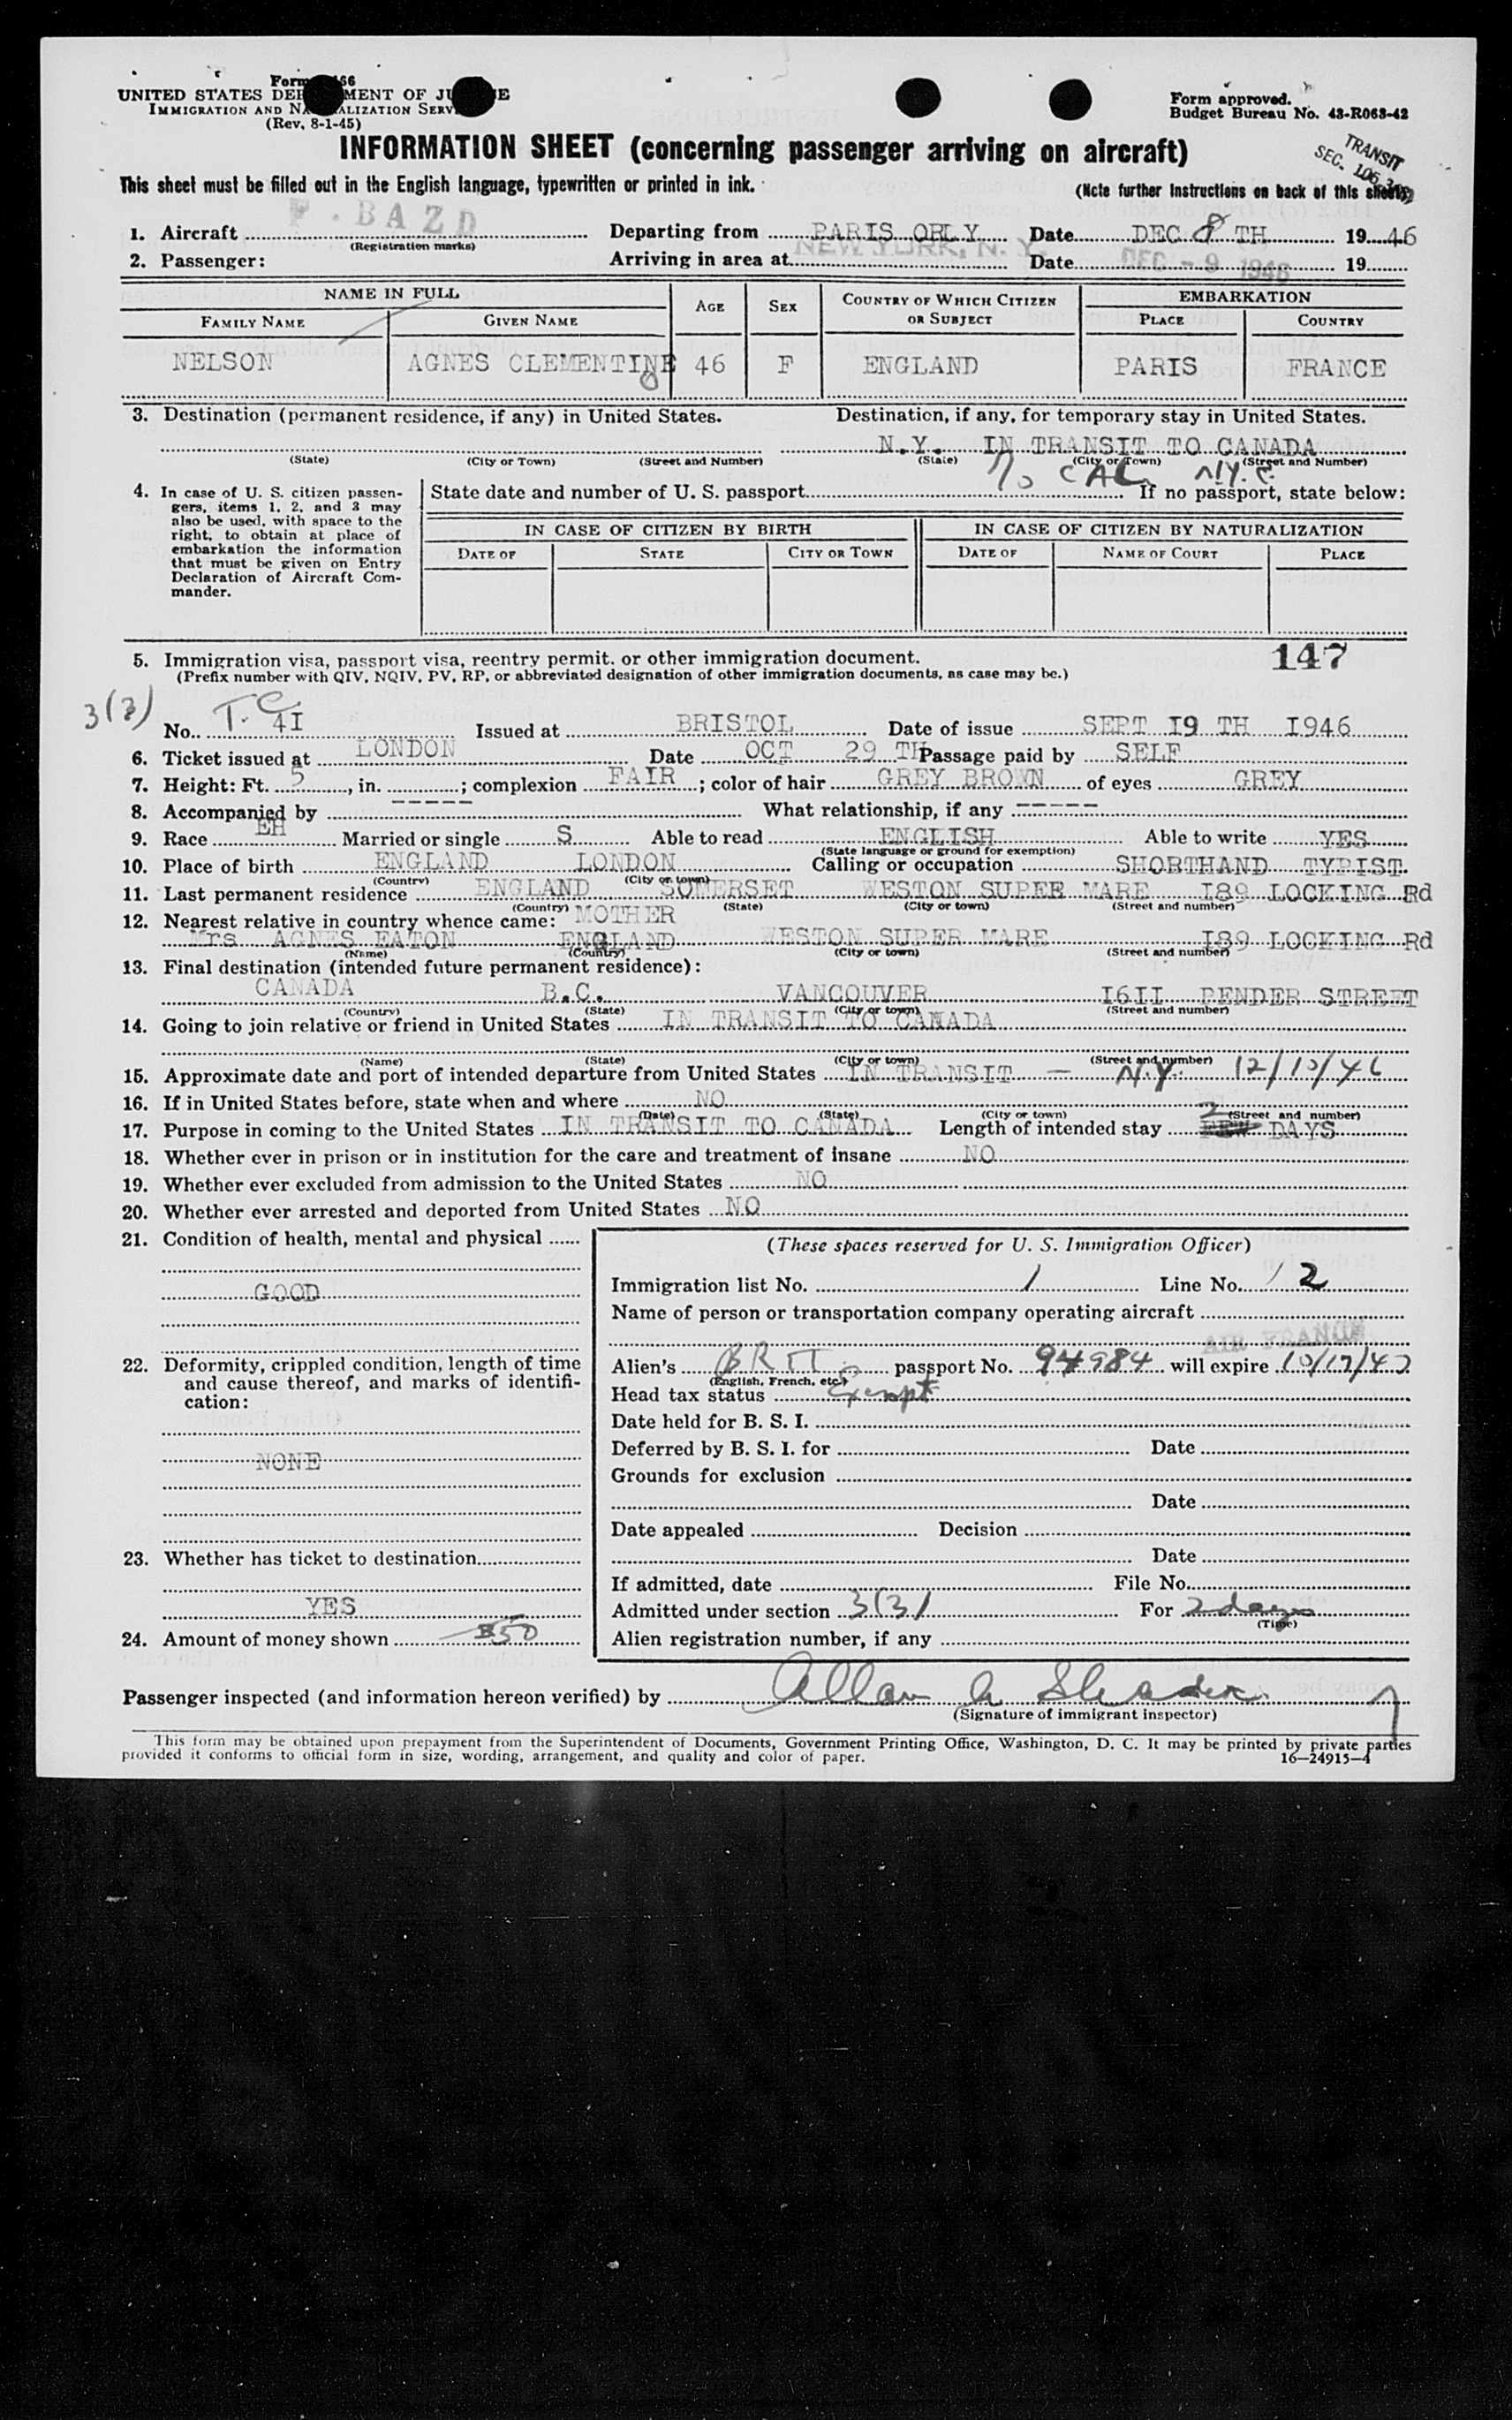 Form 66
UNITED STATES DEP MENT OF JU E
IMMIGRATION AND NA ALIZATION SERV
(Rev. 8-1-45)
Form approved.
Budget Bureau No. 43-R063-42
INFORMATION SHEET (concerning passenger arriving on aircraft)
TRANSIT
SEC. 106.3
This sheet must be filled out in the English language, typewritten or printed in ink.
(Note further instructions on back of this sheet)
1. Aircraft F.BAZD Departing from PARIS ORLY Date DEC 8 TH 1946
(Registration marks)
2. Passenger: Arriving in area at NEW YORK, N. Y. Date DEC - 9 1946 19
NAME IN FULL AGE SEX COUNTRY OF WHICH CITIZEN OR SUBJECT EMBARKATION
FAMILY NAME GIVEN NAME PLACE COUNTRY
NELSON AGNES CLEMENTINE 46 F ENGLAND PARIS FRANCE
3. Destination (permanent residence, if any) in United States. Destination, if any, for temporary stay in United States.
N.Y. IN TRANSIT TO CANADA
(State) (City or Town) (Street and Number) (State) (City or Town) (Street and Number)
N.Y.C.
4. In case of U. S. citizen passen-
gers, items 1, 2, and 3 may
also be used, with space to the
right, to obtain at place of
embarkation the information
that must be given on Entry
Declaration of Aircraft Com-
mander.
State date and number of U. S. passport If no passport, state below:
IN CASE OF CITIZEN BY BIRTH IN CASE OF CITIZEN BY NATURALIZATION
DATE OF STATE CITY OR TOWN DATE OF NAME OF COURT PLACE
147
5. Immigration visa, passport visa, reentry permit, or other immigration document.
(Prefix number with QIV, NQIV, PV, RP, or abbreviated designation of other immigration documents, as case may be.)
3(3)
No. T.C. 4I Issued at BRISTOL Date of issue SEPT I9 TH I946
6. Ticket issued at LONDON Date OCT 29 TH Passage paid by SELF
7. Height: Ft. 5, in. ; complexion FAIR ; color of hair GREY BROWN of eyes GREY
8. Accompanied by ----- What relationship, if any ------
9. Race EH Married or single S Able to read ENGLISH Able to write YES
(State language or ground for exemption)
10. Place of birth ENGLAND LONDON Calling or occupation SHORTHAND TYPIST
(Country) (City or town)
11. Last permanent residence ENGLAND SOMERSET WESTON SUPER MARE I89 LOCKING Rd
(Country) (State) (City or town) (Street and number)
12. Nearest relative in country whence came: MOTHER
Mrs AGNES EATON ENGLAND WESTON SUPER MARE I89 LOCKING Rd
(Name) (Country) (City or town) (Street and number)
13. Final destination (intended future permanent residence):
CANADA B.C. VANCOUVER I6II PENDER STREET
(Country) (State) (City or town) (Street and number)
14. Going to join relative or friend in United States IN TRANSIT TO CANADA
(Name) (State) (City or town) (Street and number)
15. Approximate date and port of intended departure from United States IN TRANSIT — N.Y. 12/10/46
16. If in United States before, state when and where NO
(Date) (State) (City or town) (Street and number)
17. Purpose in coming to the United States IN TRANSIT TO CANADA Length of intended stay 2 DAYS
18. Whether ever in prison or in institution for the care and treatment of insane NO
19. Whether ever excluded from admission to the United States NO
20. Whether ever arrested and deported from United States NO
21. Condition of health, mental and physical
GOOD
22. Deformity, crippled condition, length of time
and cause thereof, and marks of identifi-
cation:
NONE
23. Whether has ticket to destination
YES
24. Amount of money shown $50
(These spaces reserved for U. S. Immigration Officer)
Immigration list No. 1 Line No. 2
Name of person or transportation company operating aircraft
AIR FRANCE
Alien's BRIT passport No. 94984 will expire
(English, French, etc.)
Head tax status Exempt
Date held for B. S. I.
Deferred by B. S. I. for Date
Grounds for exclusion
Date
Date appealed Decision
Date
If admitted, date File No.
Admitted under section 3(3) For 2 days
(Time)
Alien registration number, if any
Passenger inspected (and information hereon verified) by Allan
(Signature of immigrant inspector)
This form may be obtained upon prepayment from the Superintendent of Documents, Government Printing Office, Washington, D. C. It may be printed by private parties
provided it conforms to official form in size, wording, arrangement, and quality and color of paper.
16—24915-4